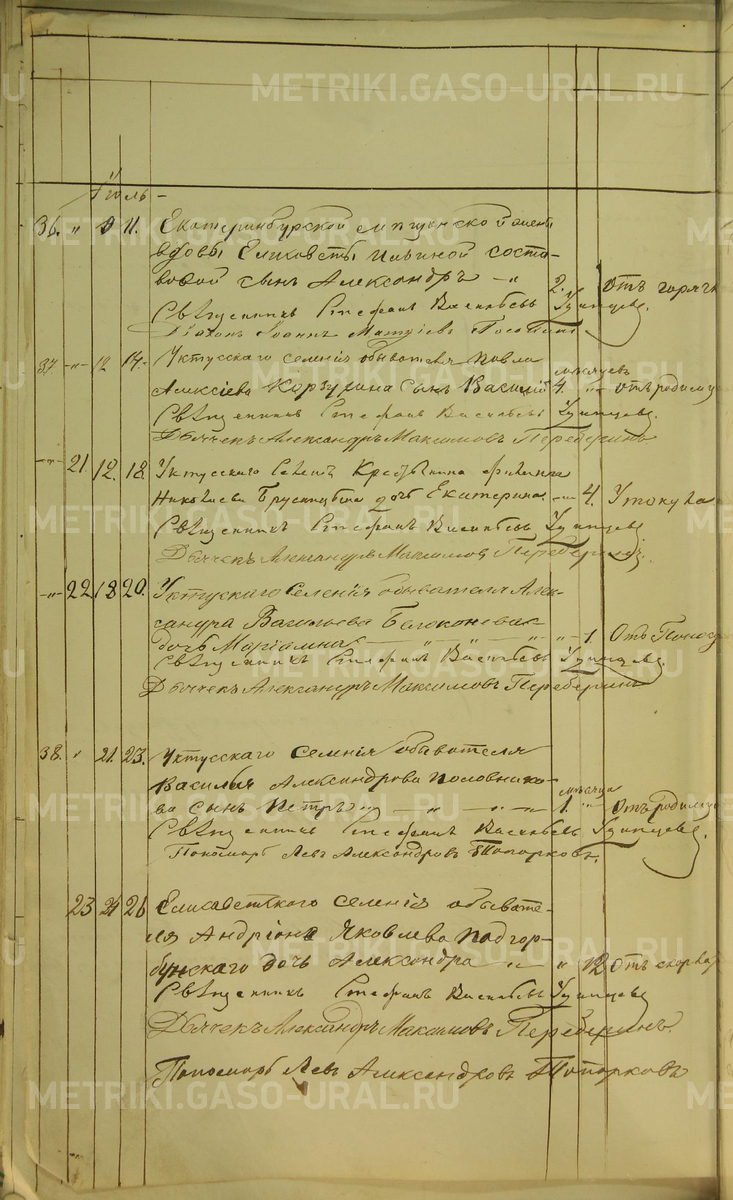 METRIKI.GASO-URAL.RU
Іюль
36. " 9 11. Екатеринбургской мещанской
вдовы Елисаветы Ильиной
сынъ Александръ 2. Отъ горяч
Священникъ Стефанъ Васильевъ Удинцевъ.
Діаконъ Іоаннъ
37 " 12 14. Уктусскаго селенія обывателя Павла
Алексіева сынъ Василій мѣсяцевъ 4. " отъ родимца
Священникъ Стефанъ Васильевъ Удинцевъ.
Дьячекъ Александръ Максимовъ Переберинъ
" 21 12. 18. Уктусскаго Селен. Крестьянина Филиппа
Николаева Брусницына дочь Екатерина 4. Утонула
Священникъ Стефанъ Васильевъ Удинцевъ.
Дьячекъ Александръ Максимовъ Переберинъ.
" 22. 18 20. Уктусскаго Селенія обывателя Алек-
сандра Васильева
дочь Маріамна " " " " 1 Отъ Поноса
Священникъ Стефанъ Васильевъ Удинцевъ.
Дьячекъ Александръ Максимовъ Переберинъ
38. " 21. 23. Уктусскаго селенія обывателя
Василья Александрова Половнико-
ва сынъ Петръ мѣсяца 1. " Отъ родимца
Священникъ Стефанъ Васильевъ Удинцевъ.
Пономарь Левъ Александровъ Топорковъ.
23 24 26 Елисаветскаго селенія обывате-
ля Андріона Яковлева Подгор-
бунскаго дочь Александра " " 12 Отъ
Священникъ Стефанъ Васильевъ Удинцевъ
Дьячекъ Александръ Максимовъ Переберинъ.
Пономарь Левъ Александровъ Топорковъ